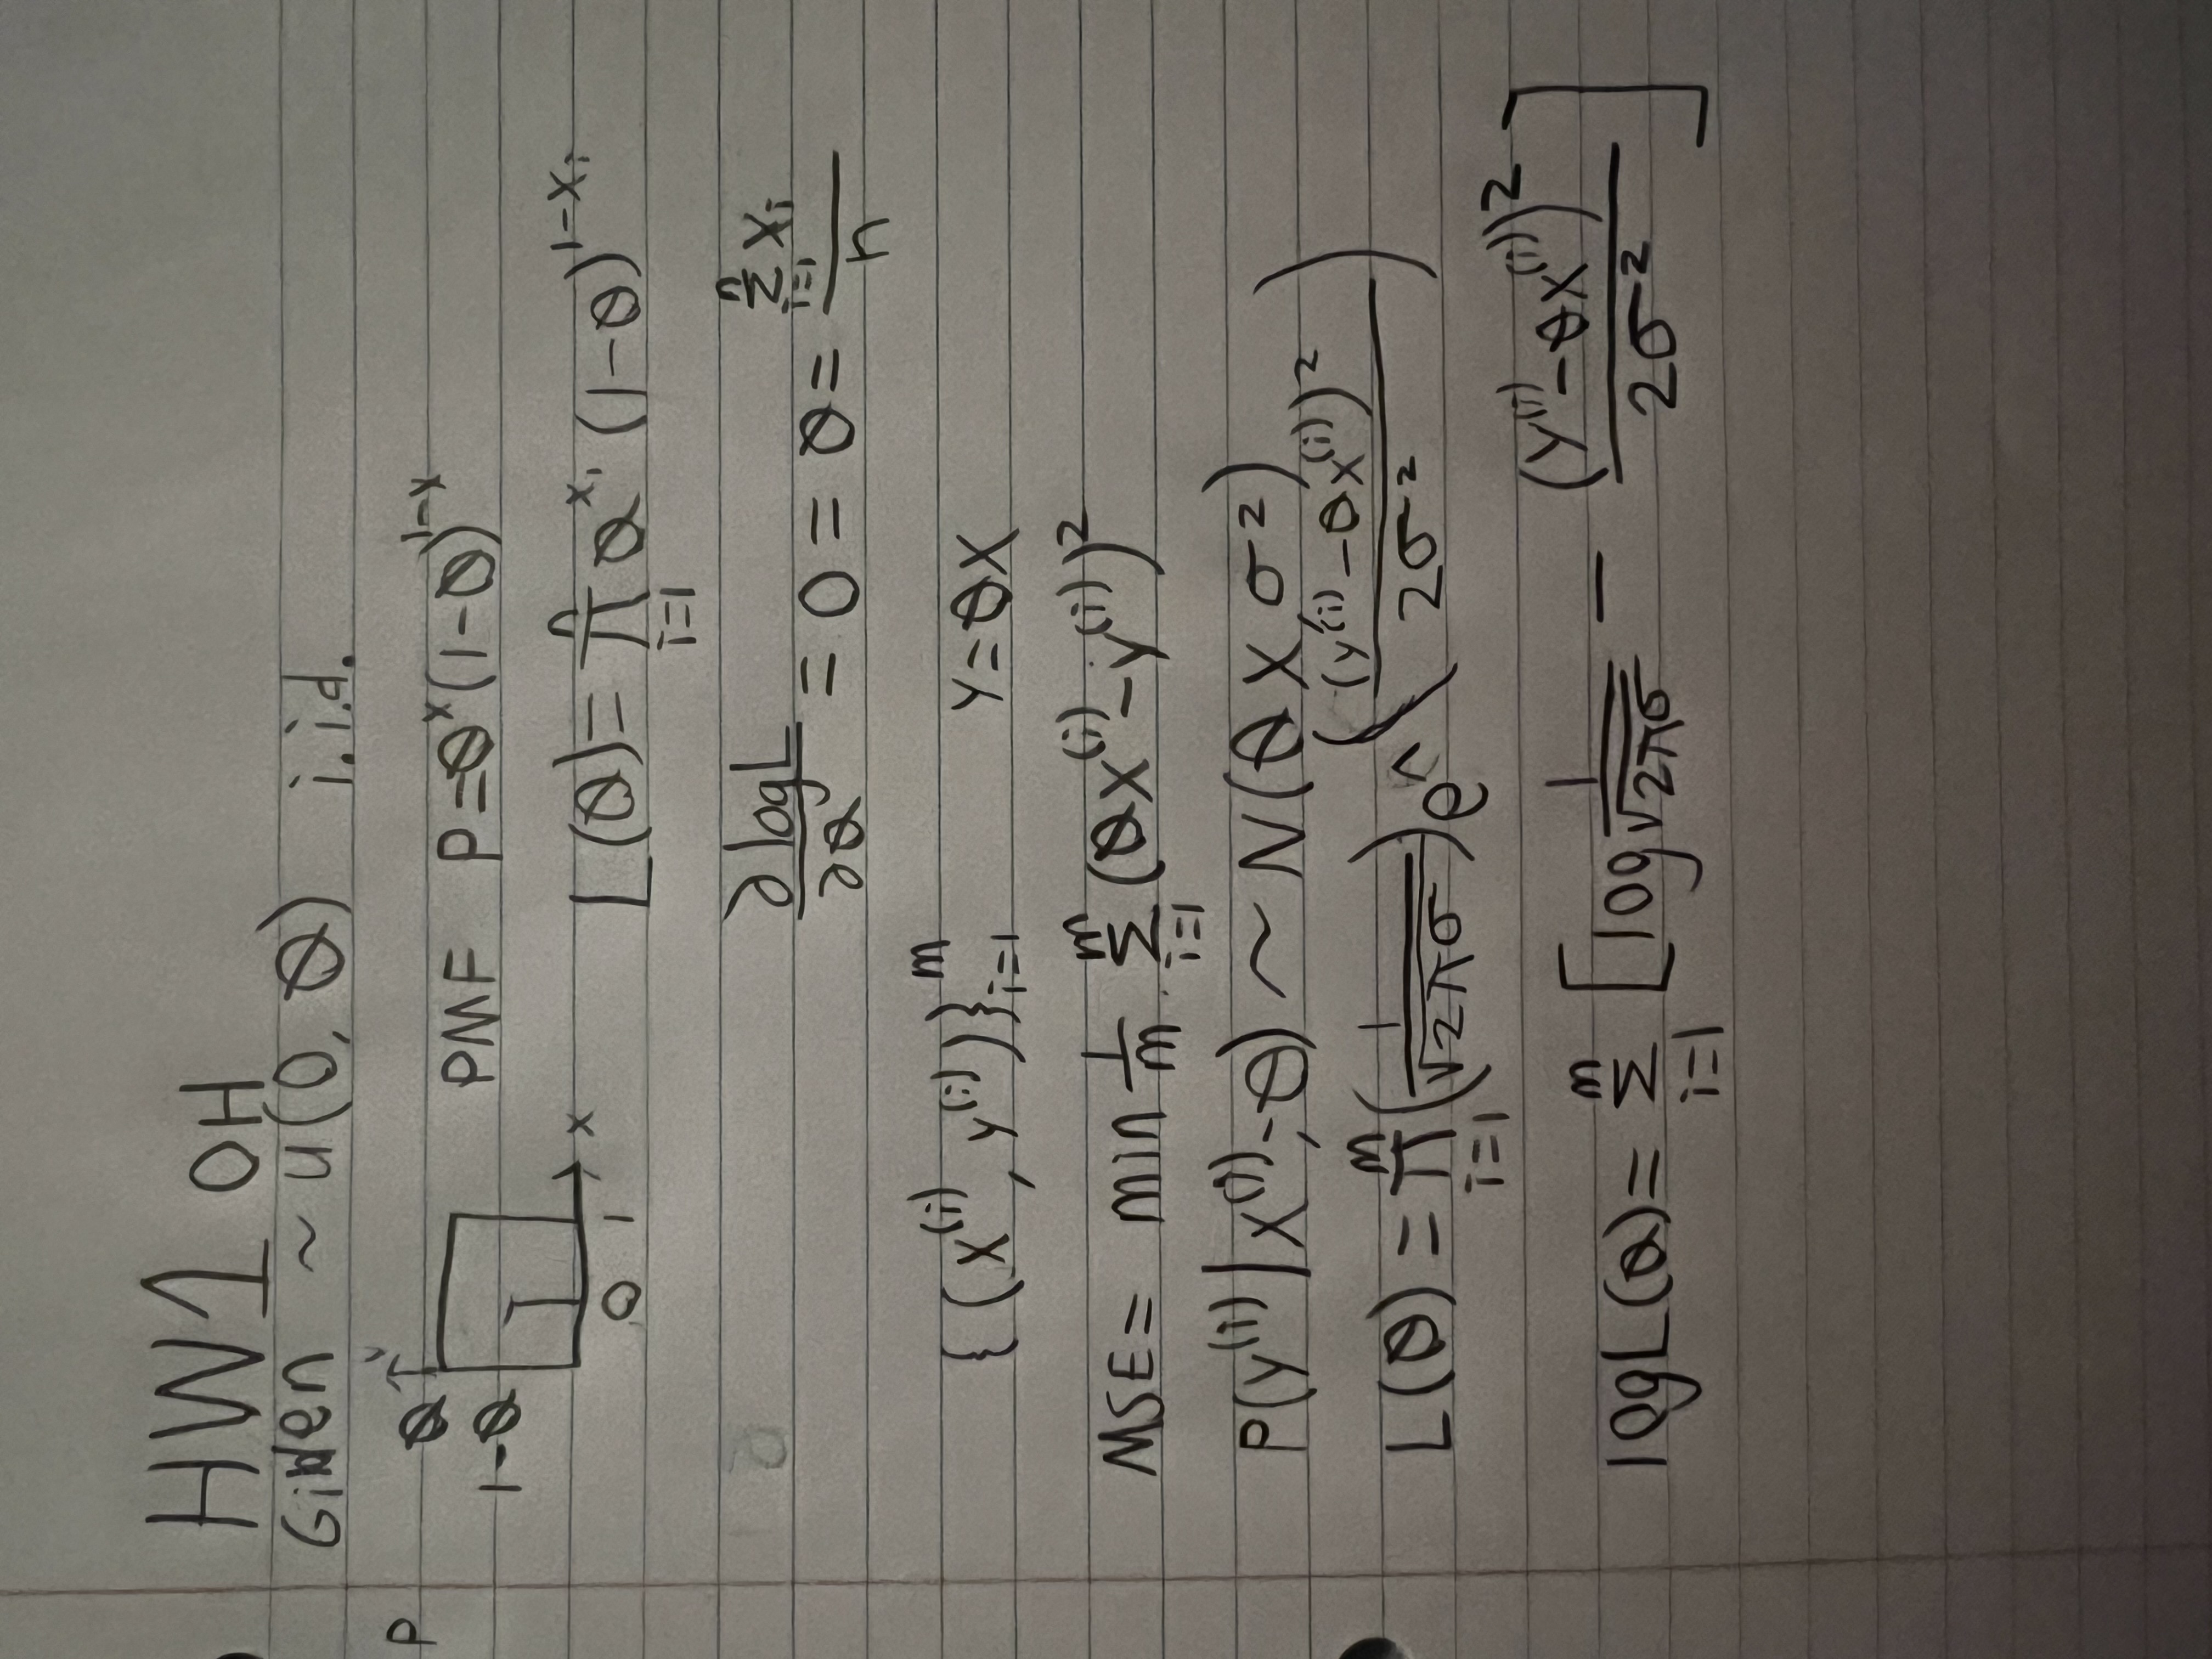 HW1 OH
Given ~ U(0, θ) i.i.d.
P θ PMF P=θ^x (1-θ)^{1-x}
1-θ
x
0 1
L(θ)= ∏_{i=1}^{n} θ^{x_i} (1-θ)^{1-x_i}
∂logL/∂θ = 0 = θ = ∑_{i=1}^{n} x_i / n
{(x^{(i)}, y^{(i)})}_{i=1}^{m} Y=θX
MSE= min 1/m ∑_{i=1}^{m} (θx^{(i)}-y^{(i)})^2
P(y^{(i)}|x^{(i)};θ) ~ N(θX,σ^2)
L(θ) = ∏_{i=1}^{m} (1/√2πσ) e^((y^{(i)}-θx^{(i)})^2 / 2σ^2)
logL(θ)= ∑_{i=1}^{m} [log 1/√2πσ - (y^{(i)}-θx^{(i)})^2 / 2σ^2]